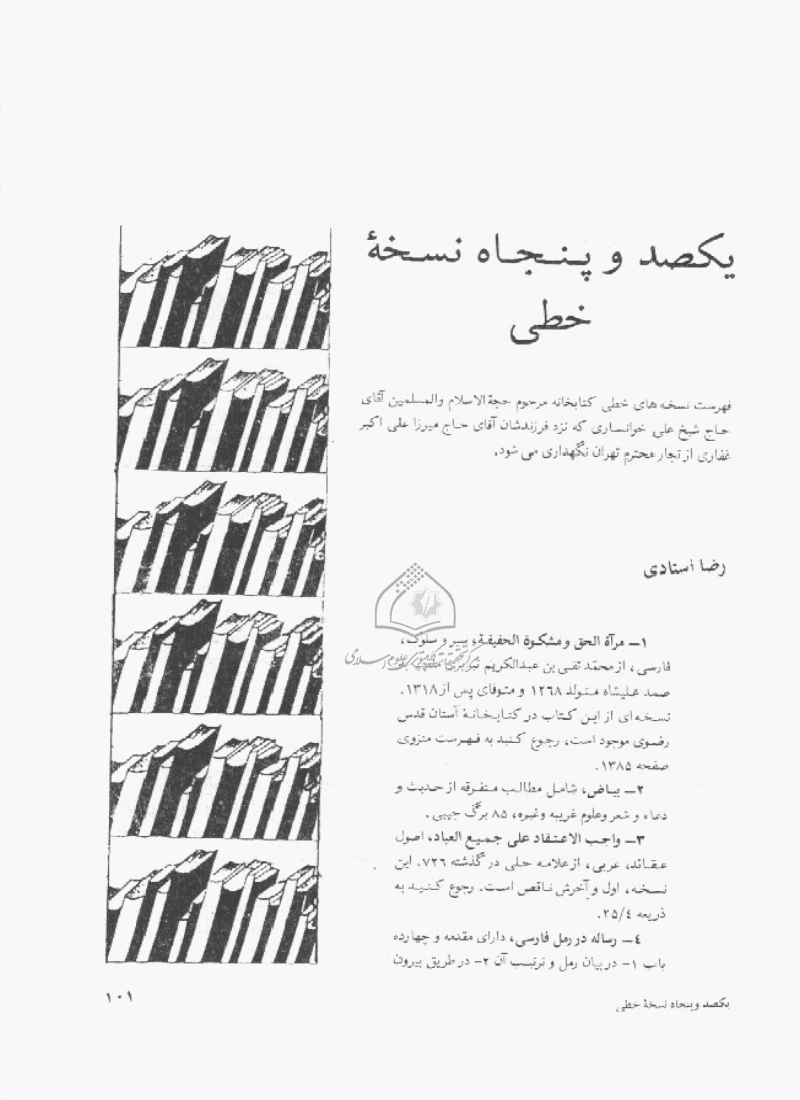 یکصد و پنجاه نسخهٔ
خطی
فهرست نسخه های خطی کتابخانه مرحوم حجة الاسلام والمسلمین آقای
حاج شیخ علی خوانساری که نزد فرزندشان آقای حاج میرزا علی اکبر
غفاری از تجار محترم تهران نگهداری می شود.
رضا استادی
۱ــ مرآة الحق و مشکوة الحقیقة، سیر و سلوک،
فارسی، از محمّد تقی بن عبدالکریم
صمد علیشاه متولد ۱۲۶۸ و متوفای پس از ۱۳۱۸.
نسخه ای از این کتاب در کتابخانهٔ آستان قدس
رضوی موجود است، رجوع کنید به فهرست منزوی
صفحه ۱۳۸۵.
۲ــ بیاض، شامل مطالب متفرقه از حدیث و
دعاء و شعر وعلوم غریبه وغیره، ۸۵ برگ جیبی.
۳ــ واجب الاعتقاد علی جمیع العباد، اصول
عقائد، عربی، از علامه حلی در گذشته ۷۲۶. این
نسخه، اول و آخرش ناقص است. رجوع کنید به
ذریعه ۲۵/٤.
٤ــ رساله در رمل فارسی، دارای مقدمه و چهارده
باب ۱- در بیان رمل و ترتیب آن ۲- در طریق بیرون
یکصد وپنجاه نسخهٔ خطی
۱۰۱